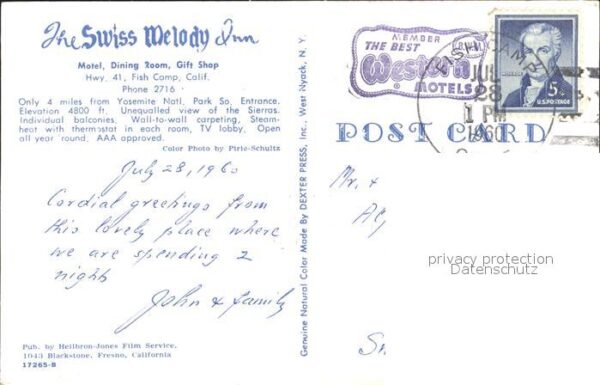 The Swiss Melody Inn
Motel, Dining Room, Gift Shop
Hwy. 41, Fish Camp, Calif.
Phone 2716
Only 4 miles from Yosemite Natl. Park So. Entrance.
Elevation 4800 ft. Unequalled view of the Sierras.
Individual balconies. Wall-to-wall carpeting. Steam-
heat with thermostat in each room, TV lobby. Open
all year 'round, AAA approved.
Color Photo by Pirie-Schultz
July 28, 1960
Cordial greetings from
this lovely place where
we are spending 2
nights
John & family
Pub. by Heilbron-Jones Film Service,
1043 Blackstone, Fresno, California
17265-B
Genuine Natural Color Made By DEXTER PRESS, Inc., West Nyack, N. Y.
MEMBER
THE BEST
Western
MOTELS
FISH CAMP
JUL
28
1 PM
1960
5¢
U.S. POSTAGE
POST CARD
Mr. &
privacy protection
Datenschutz